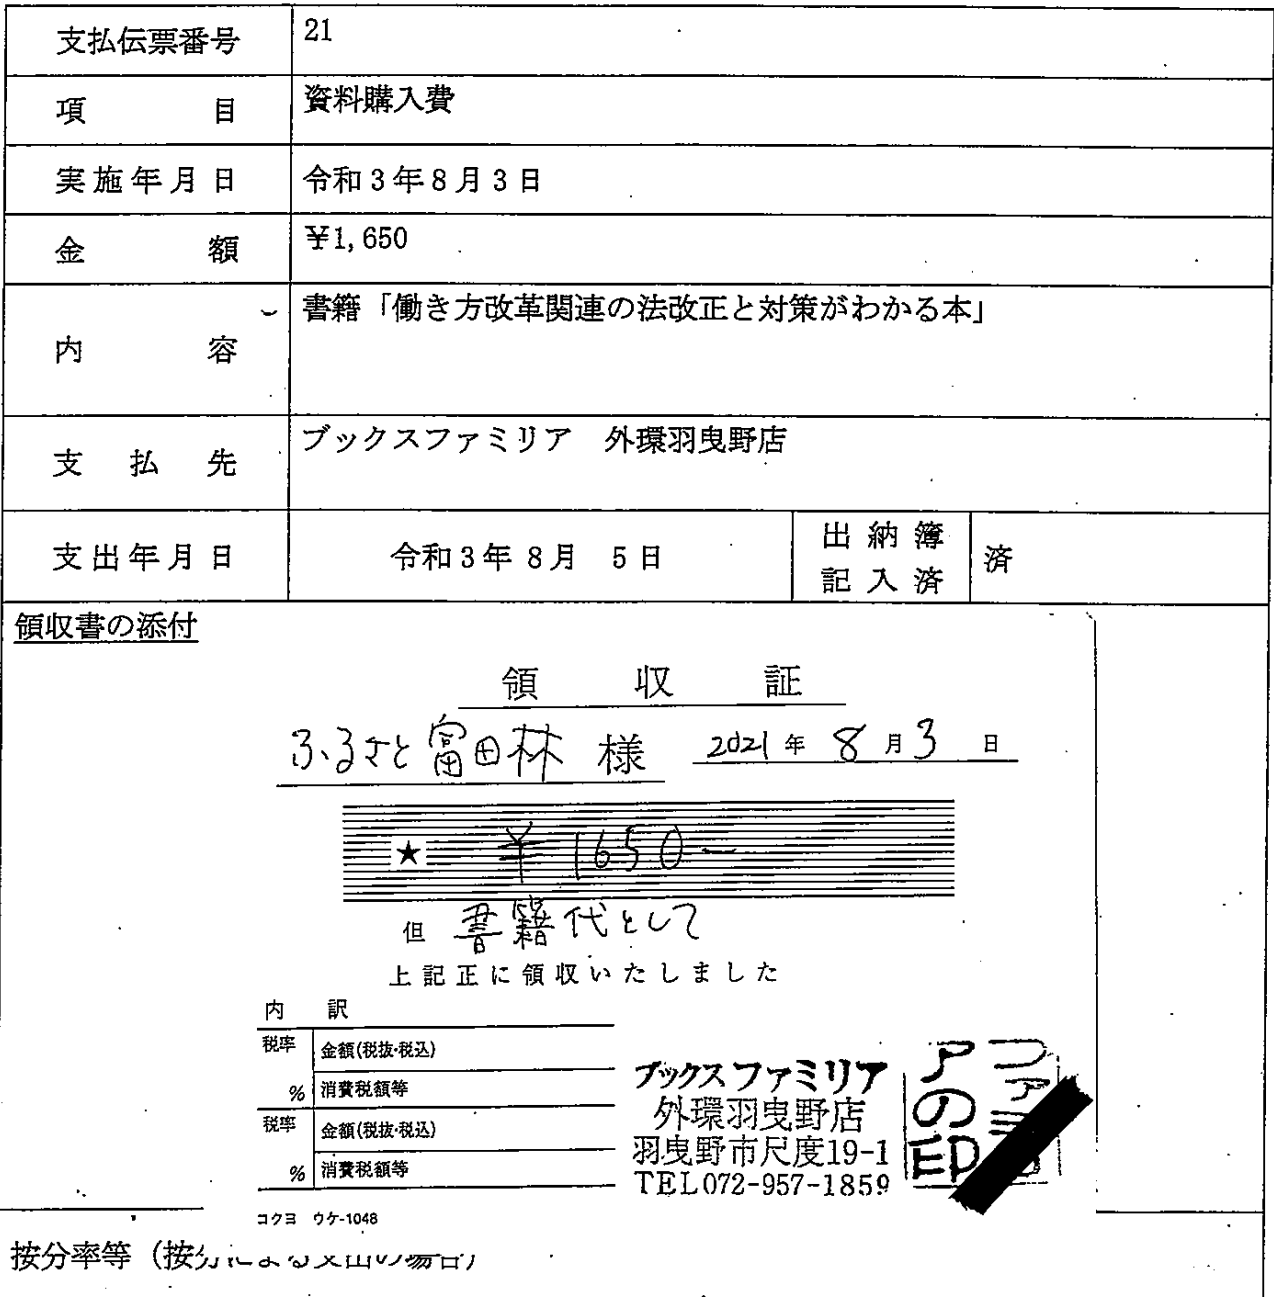 支払伝票番号 21
項目 資料購入費
実施年月日 令和3年8月3日
金額 ¥1,650
内容 書籍「働き方改革関連の法改正と対策がわかる本」
支払先 ブックスファミリア 外環羽曳野店
支出年月日 令和3年8月 5日 出納簿記入済 済
領収書の添付
領収証
ふるさと富田林 様 2021年 8月3日
★ ¥1650-
但 書籍代として
上記正に領収いたしました
内訳
税率 金額(税抜・税込)
% 消費税額等
税率 金額(税抜・税込)
% 消費税額等
ブックスファミリア
外環羽曳野店
羽曳野市尺度19-1
TEL072-957-1859
ファミ
アの印
コクヨ ウケ-1048
按分率等（按分による支出の場合）